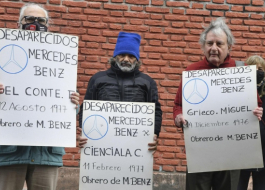 DESAPARECIDOS
MERCEDES
BENZ
DEL CONTE.
12 Agosto 1977
Obrero de M. BENZ
DESAPARECIDOS
MERCEDES
BENZ
CIENCIALA C.
11 Febrero 1977
Obrero de M.BENZ
DESAPARECIDOS
MERCEDES
BENZ
Grieco. MIGUEL
Diciembre 1976
Obrero de M. BENZ